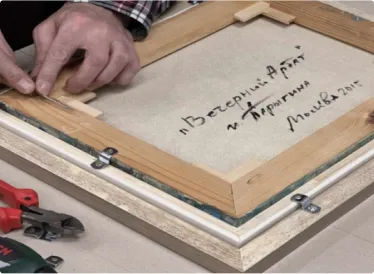 "Вечерний Арбат"
и. Барыгина
Москва 2015